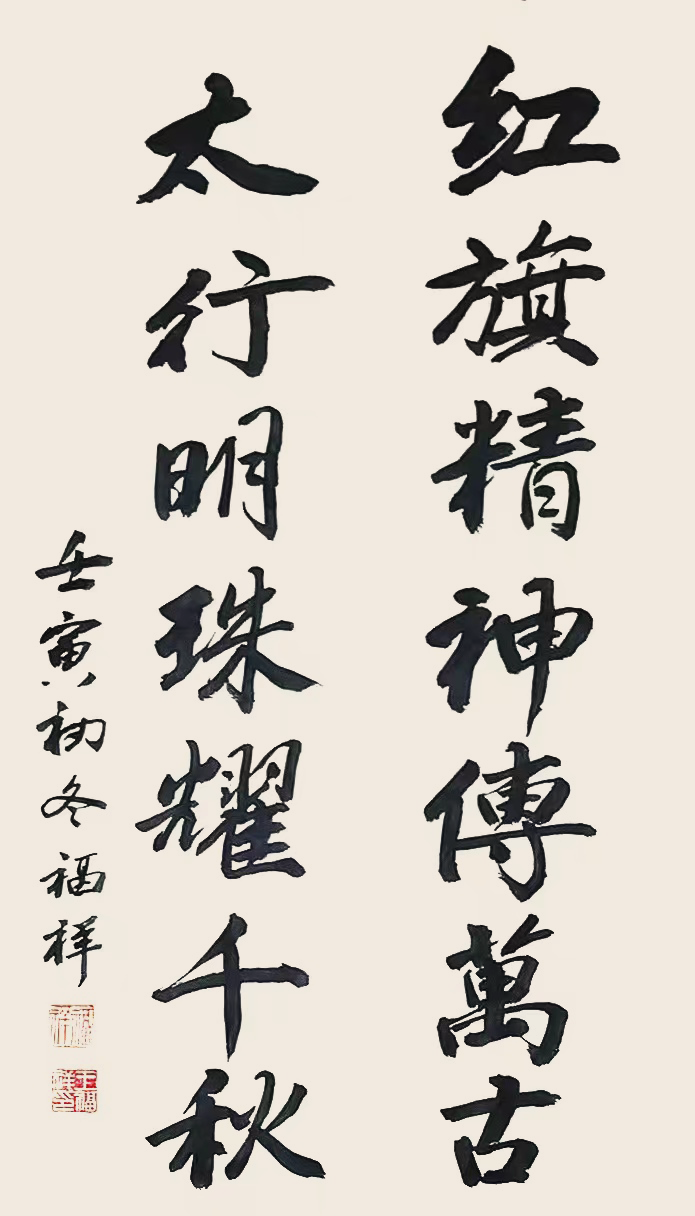 红旗精神傳萬古
太行明珠耀千秋
壬寅初冬福祥